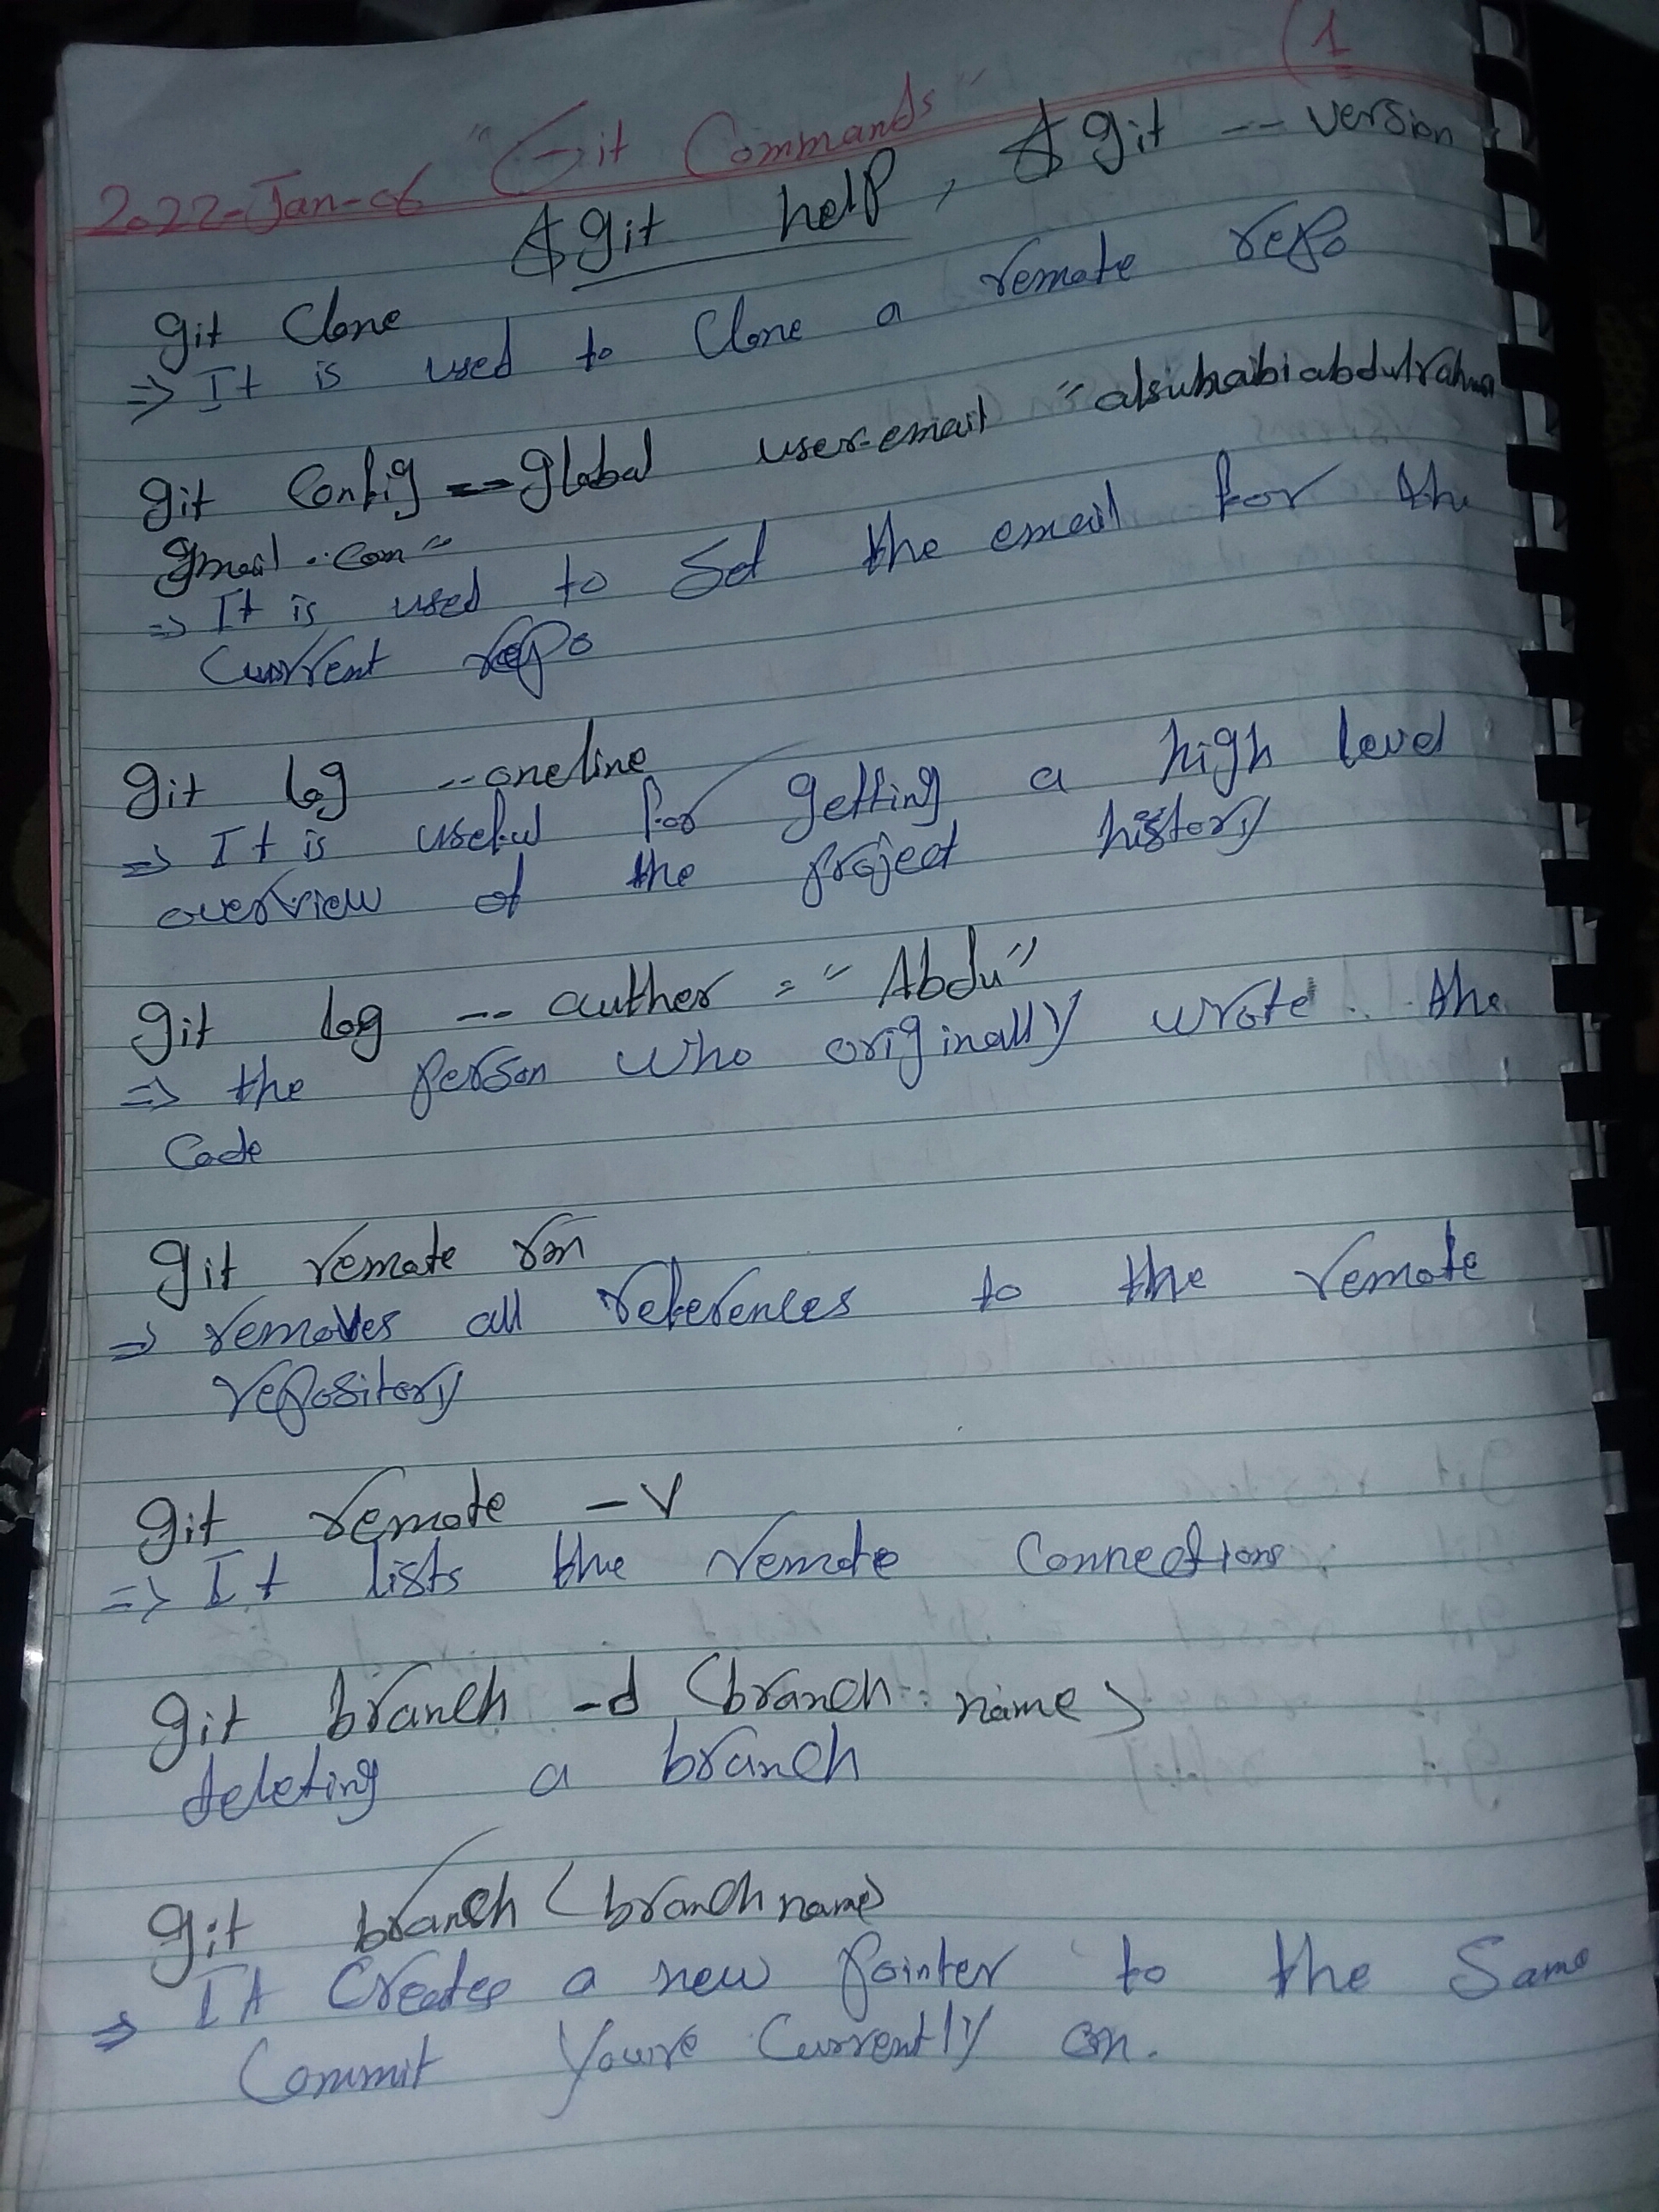 (1
2022-Jan-06 "Git Commands"
$ git help, $ git -- version
git Clone
=> It is used to Clone a remote repo
git Config --global user-email "alsuhaibiabdulrahman
gmail.com"
=> It is used to Set the email for the
Current repo
git log --oneline
=> It is useful for getting a high level
overview of the project history
git log -- auther = "Abdu"
=> the person who originally wrote the
Code
git remote rm
=> removes all references to the remote
repository
git remote -v
=> It lists the remote Connections
git branch -d (branch name>
deleting a branch
git branch (branch name)
=> It Creates a new pointer to the Same
Commit You're Currently on.